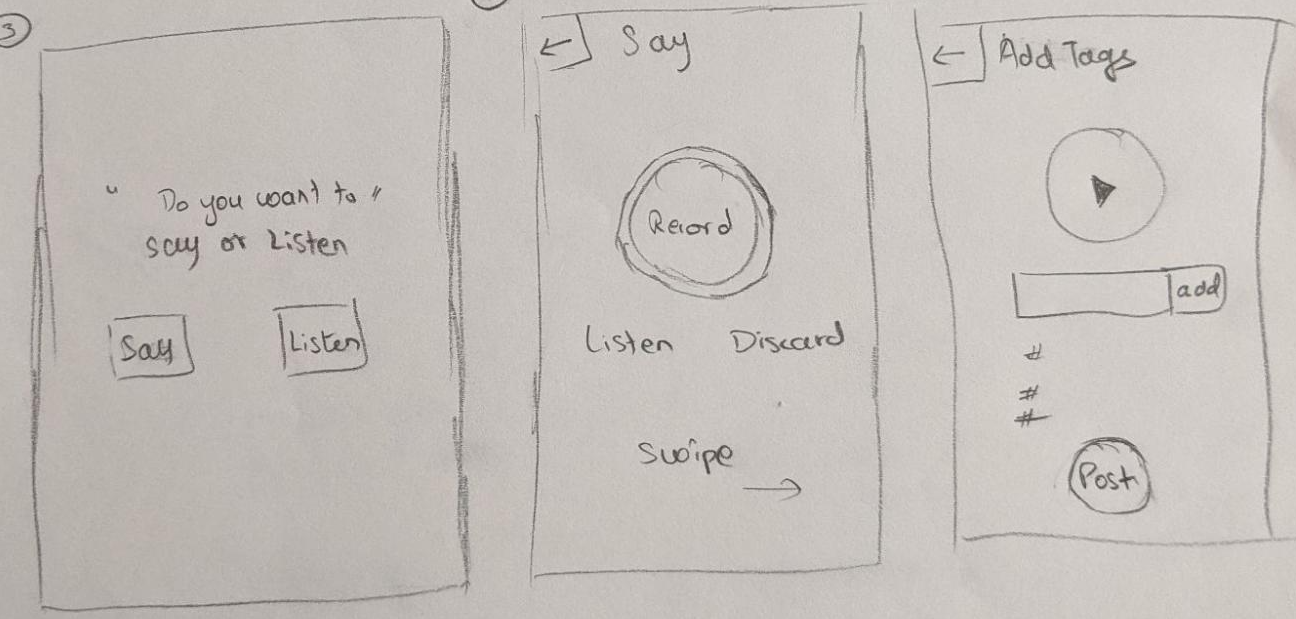 3
" Do you want to "
say or Listen
Say
Listen
← Say
Record
Listen Discard
Swipe
→
← Add Tags
add
#
#
#
Post